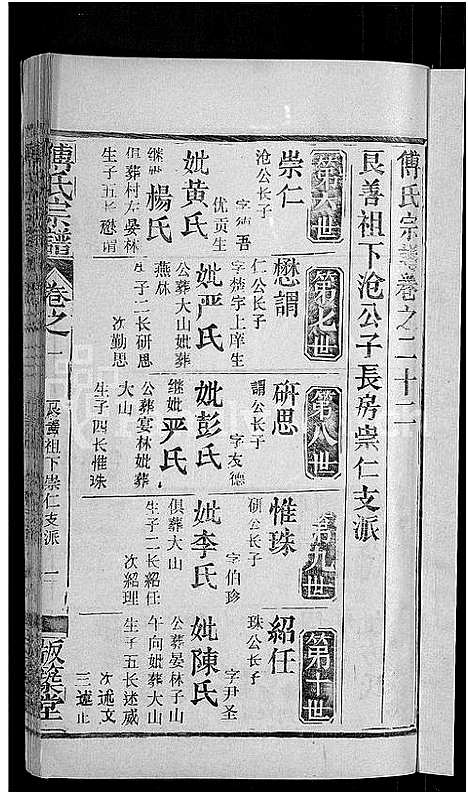 傅氏宗譜卷之二十二
良善祖下沧公子長房崇仁支派
第六世
崇仁
沧公長子
字德吾
优贡生
妣黄氏
继妣楊氏
俱葬村左晏林
生子五长懋谓
第七世
懋謂
仁公长子
字梦宇上庠生
妣严氏
公葬大山妣葬
燕林
生子二长研思
次勤思
第八世
研思
謂公长子
字友德
妣彭氏
继妣严氏
公葬宴林妣葬
大山
生子四长惟珠
第九世
惟珠
研公长子
字伯珍
妣李氏
俱葬大山
生子二长紹任
次紹理
第十世
紹任
珠公长子
字尹圣
妣陳氏
公葬晏林子山
午向妣葬大山
生子五长述威
次述文
三述正
傅氏宗譜
卷之
良善祖下崇仁支派
一
版築堂